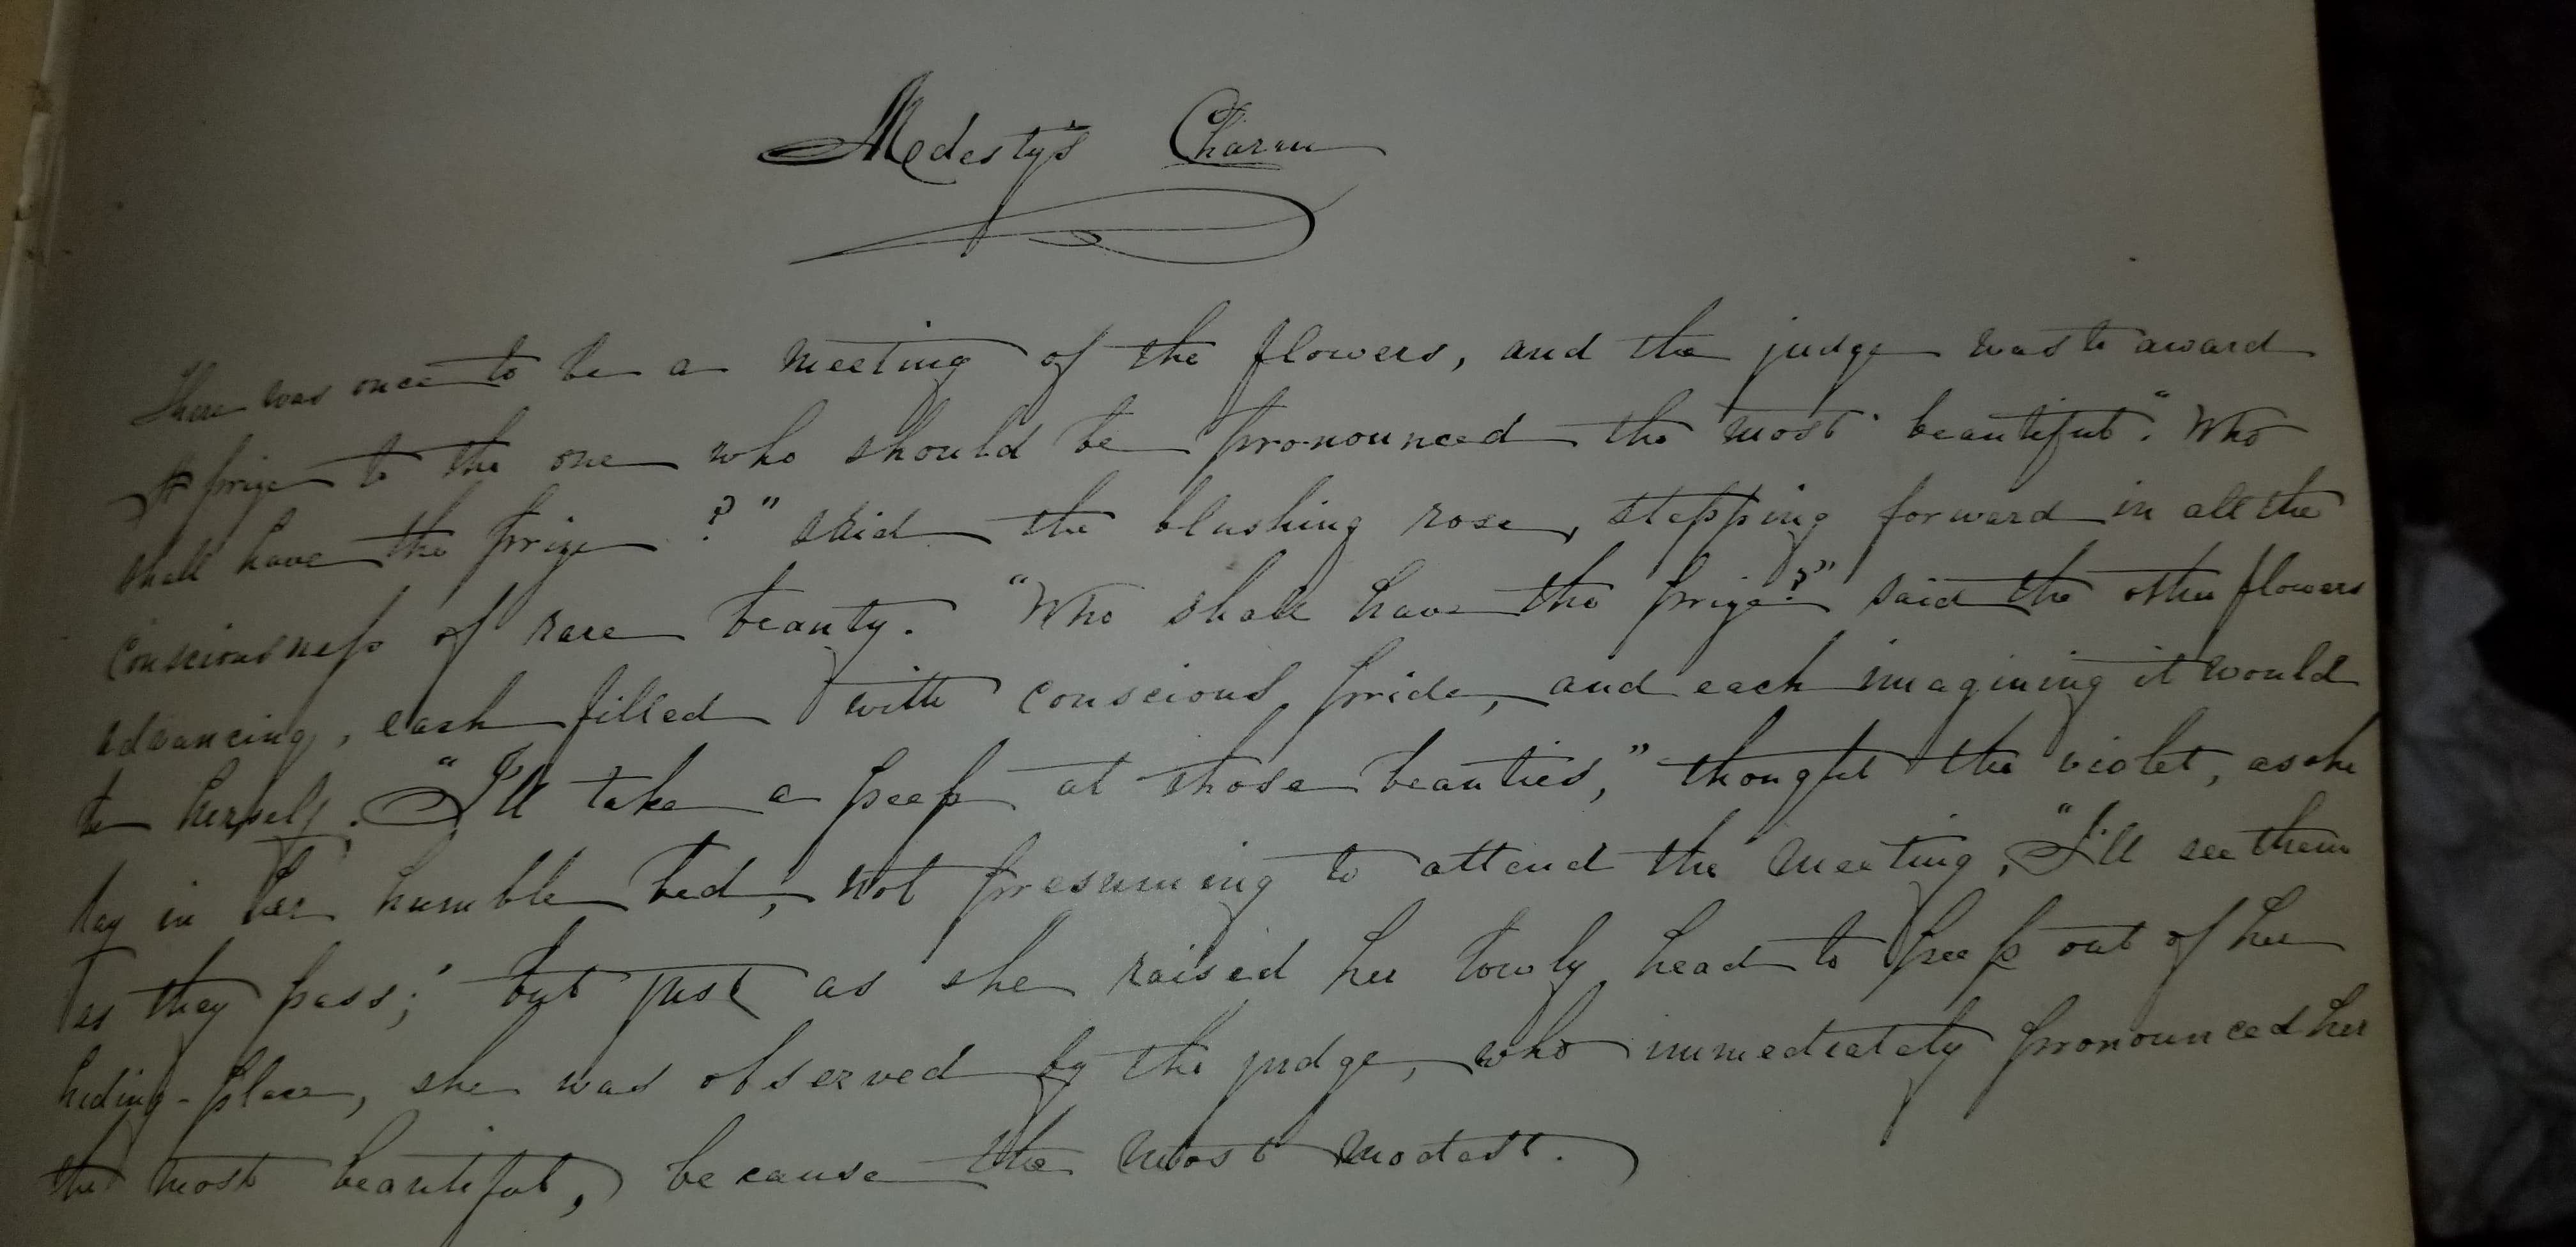 Modesty's Charm
There was once to be a meeting of the flowers, and the judge was to award
A prize to the one who should be pronounced the most beautiful. "Who
shall have the prize?" said the blushing rose, stepping forward in all the
consciousness of rare beauty. "Who shall have the prize?" said the other flowers
advancing, each filled with conscious pride, and each imagining it would
be herself. "I'll take a peep at those beauties," thought the violet, as she
lay in her humble bed, not presuming to attend the meeting, "I'll see them
as they pass;" but just as she raised her lowly head to peep out of her
hiding-place, she was observed by the judge, who immediately pronounced her
the most beautiful, because the most modest.